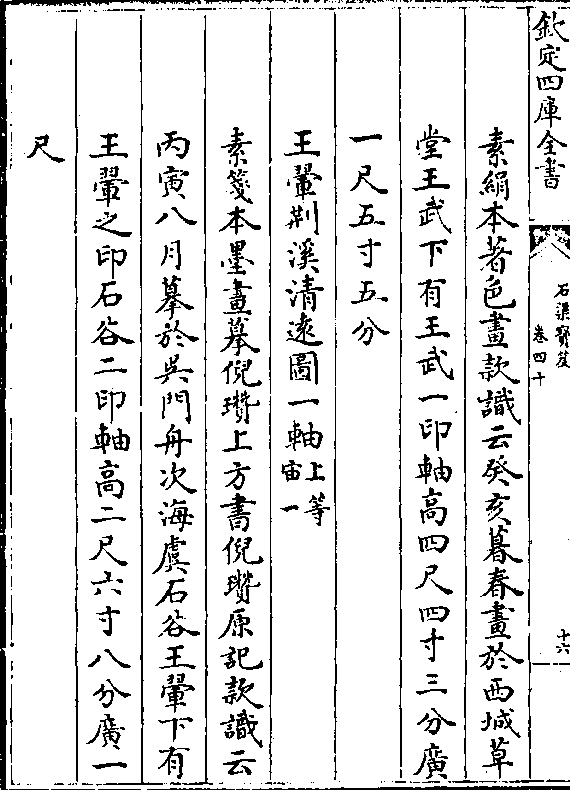 欽定四庫全書
石渠寳笈
卷四十
十六
素絹本著色畫款識云癸亥暮春畫於西城草
堂王武下有王武一印軸高四尺四寸三分廣
一尺五寸五分
王翬荆溪清逺圖一軸上等
宙一
素箋本墨畫摹倪瓚上方書倪瓚原記款識云
丙寅八月摹於吳門舟次海虞石谷王翬下有
王翬之印石谷二印軸高二尺六寸八分廣一
尺